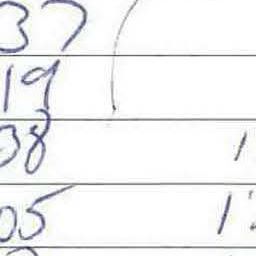 37
19
38 1
05 1